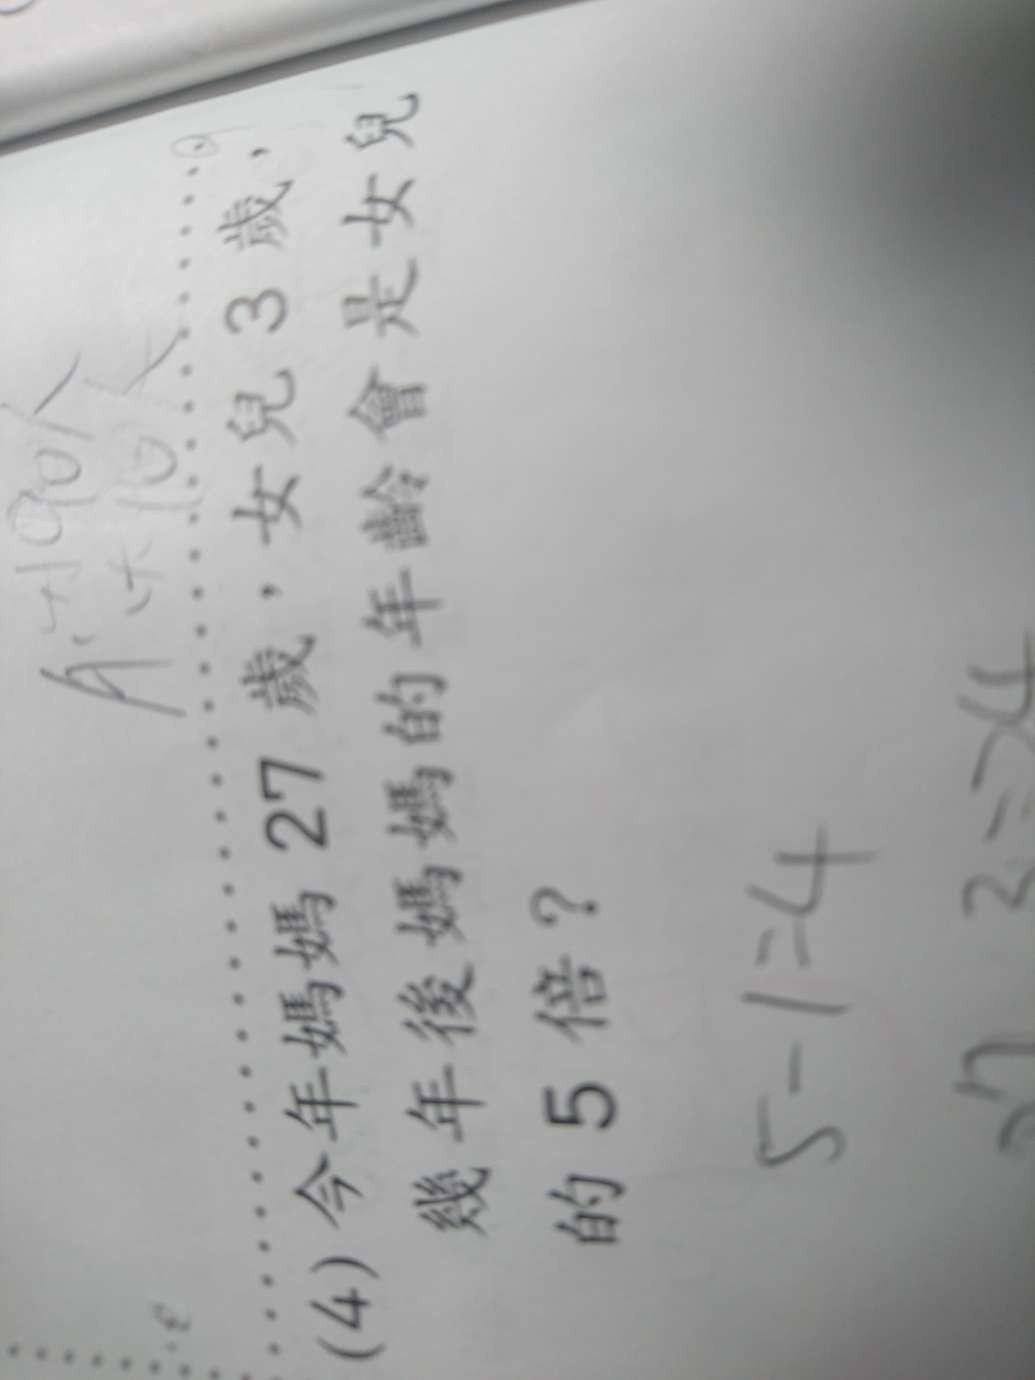 A:大90人
小10人
(4)今年媽媽27歲,女兒3歲,
幾年後媽媽的年齡會是女兒
的5倍?
5-1=4